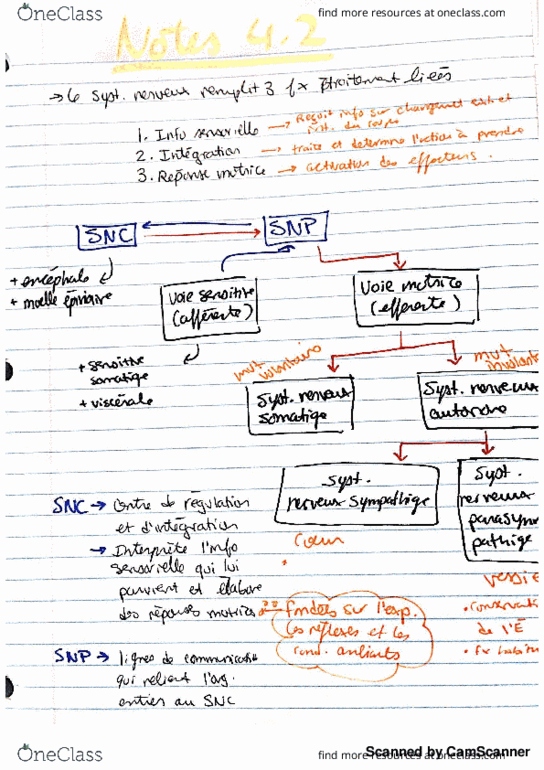 OneClass
find more resources at oneclass.com
Notes 4.2
→ Le Syst. nerveux remplit 3 fx étroitement liées
1. Info sensorielle → Reçoit info sur changement ext et int. du corps
2. Intégration → traite et determine l'action à prendre
3. Réponse motrice → activation des effecteurs.
SNC
SNP
+ encéphale
+ moelle épinière
Voie sensitive
(afférente)
Voie motrice
(efférente)
+ sensitive
somatique
+ viscérale
mvt
volontaire
mvt
Syst. nerveux
somatique
Syst. nerveux
autonome
Syst.
nerveux sympathique
Syst.
nerveux
parasym
pathique
SNC → Centre de régulation
et d'intégration
→ Interprète l'info
sensorielle qui lui
parvient et élabore
des réponses motrices
fondées sur l'exp.
les réflexes et les
cond. ambiants
Coeur
de l'É
SNP → lignes de communication
qui relient l'org.
entier au SNC
OneClass
find more resources at oneclass.com
Scanned by CamScanner